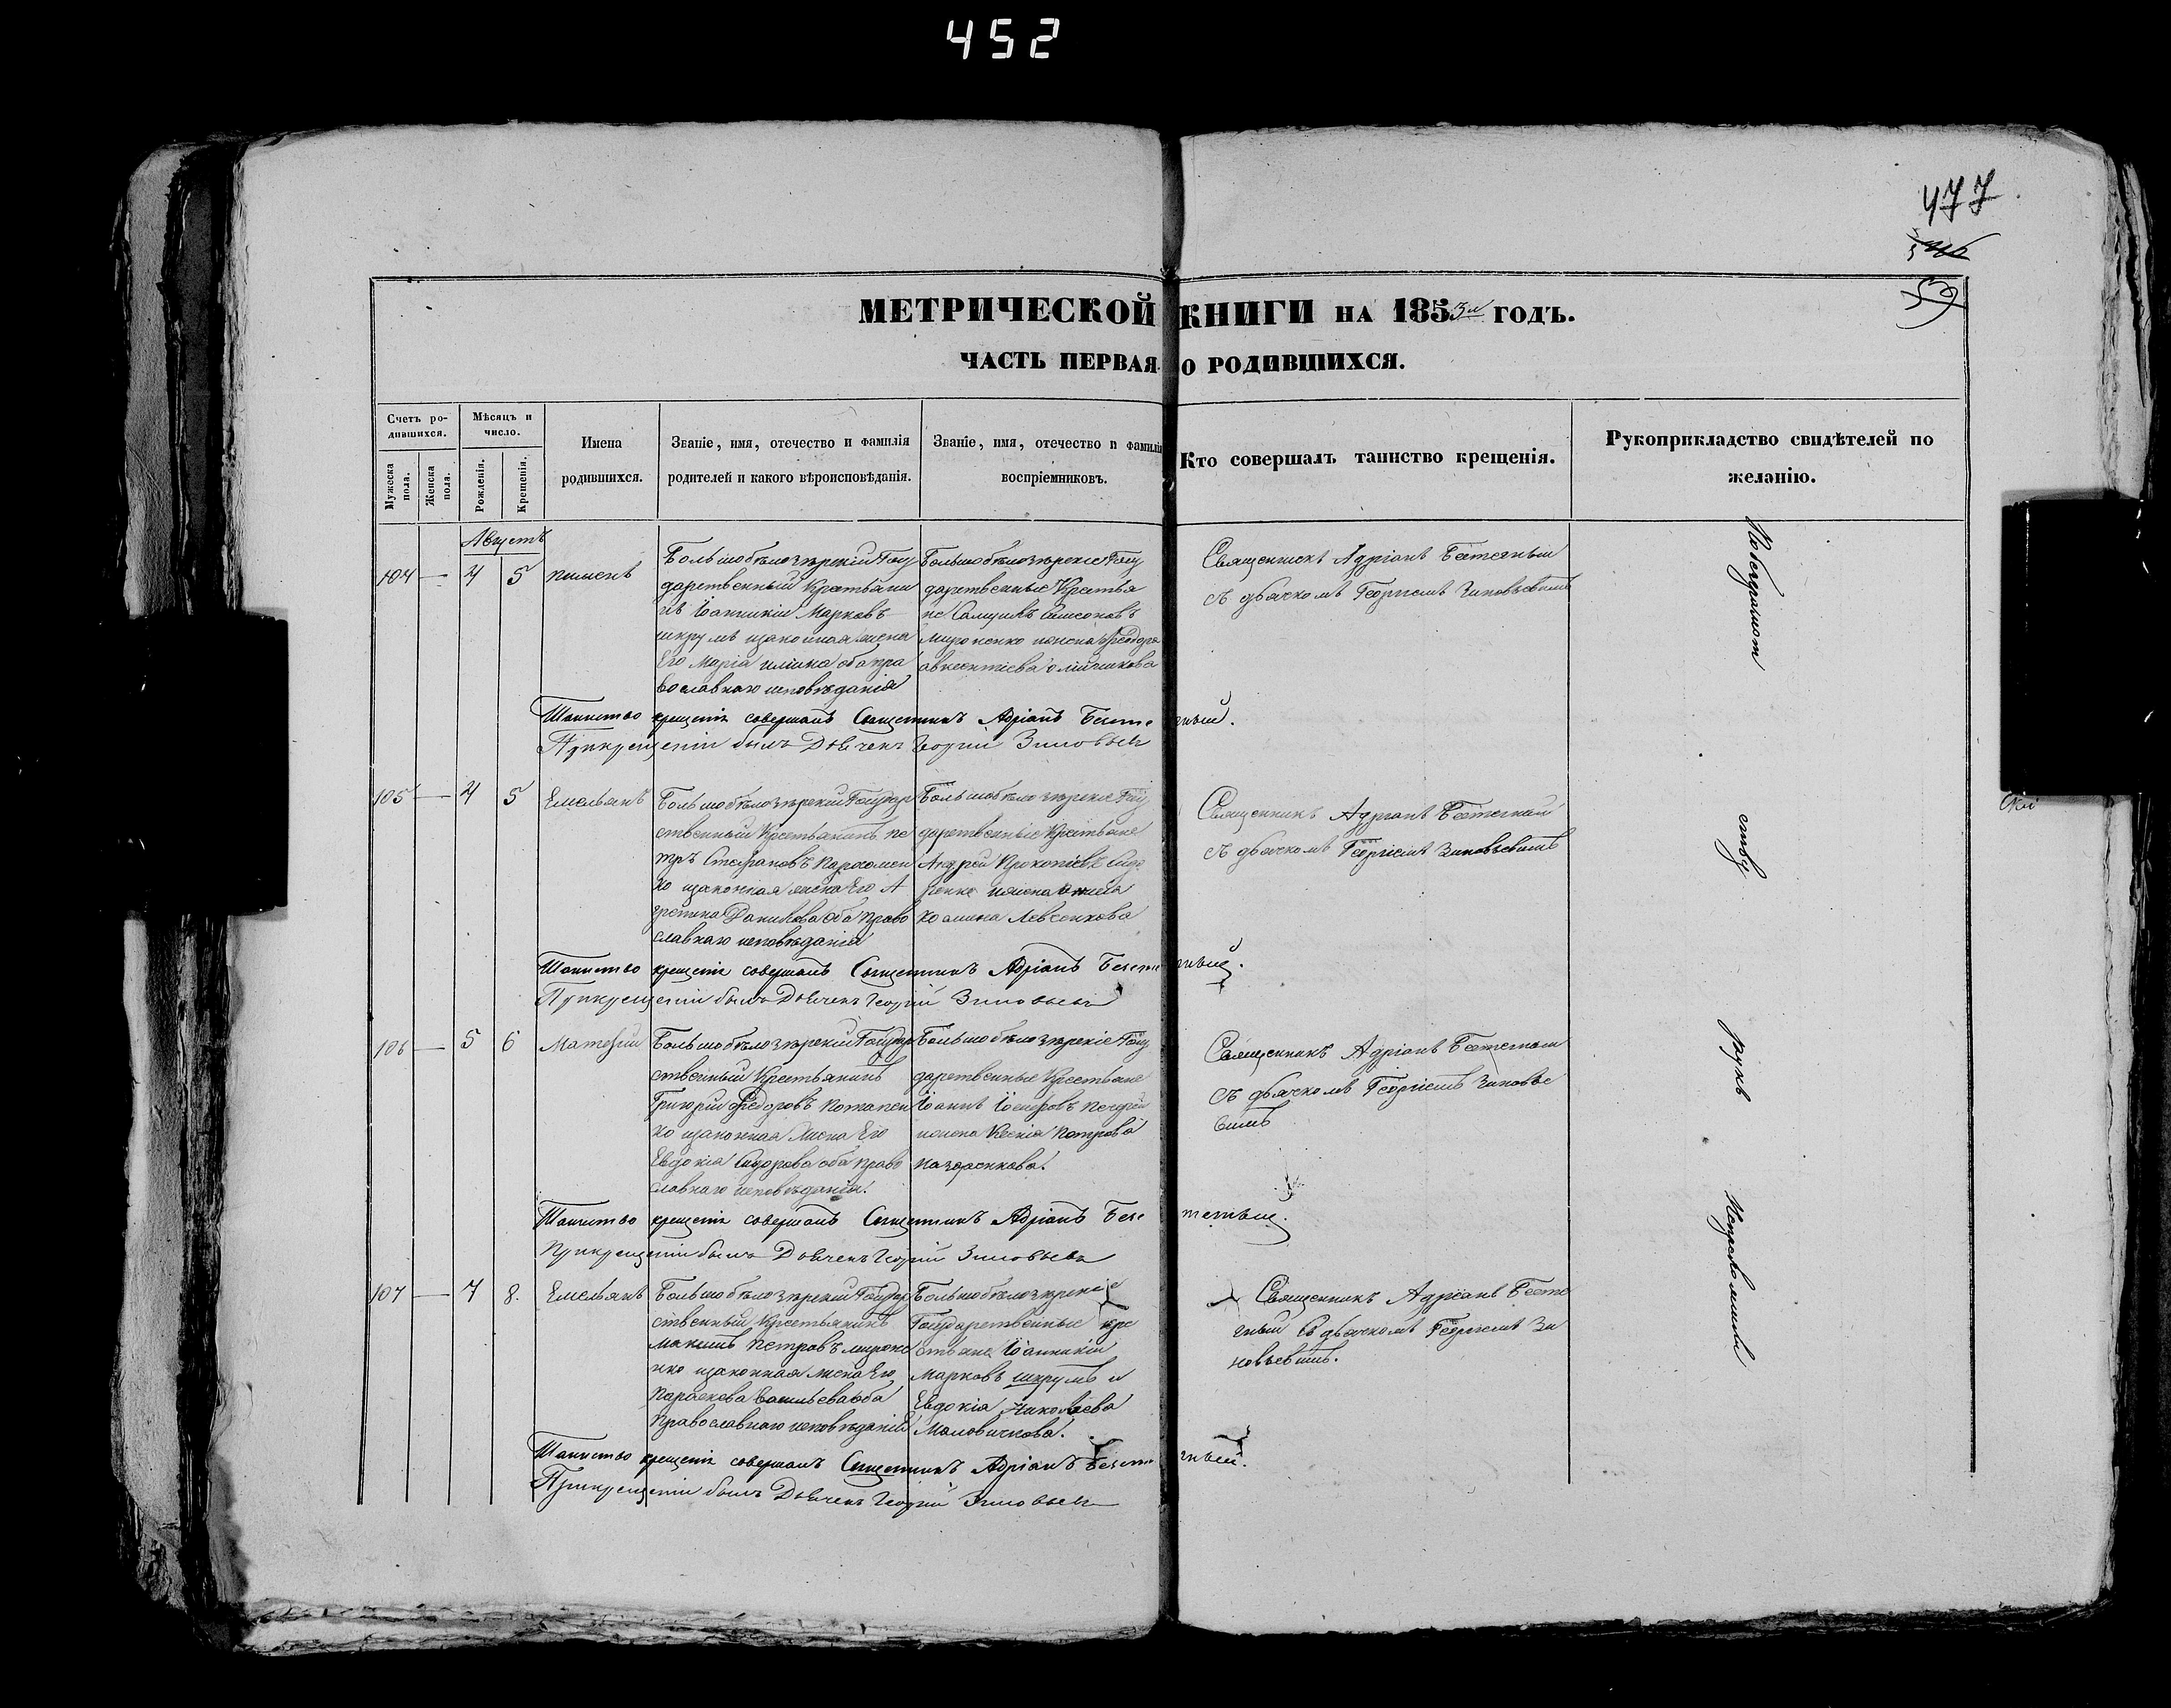 452
477
59
МЕТРИЧЕСКОЙ КНИГИ НА 1853й ГОДЪ.
ЧАСТЬ ПЕРВАЯ О РОДИВШИХСЯ.
Счетъ ро-
дившихся.
Мужеска
пола.
Женска
пола.
Мѣсяцъ и
число.
Рожденія.
Крещенія.
Имена
родившихся.
Званіе, имя, отечество и фамилія
родителей и какого вѣроисповѣданія.
Званіе, имя, отечество и фамилія
воспріемниковъ.
Кто совершалъ таинство крещенія.
Рукоприкладство свидѣтелей по
желанію.
Августъ
104 — 4 5 Пименъ
Большобѣлозѣрскій Госу
дарственный Крестьяни
нъ Іоанникій Марковъ
шкрумъ изаконная жена
Его Марія оба пра
вославнаго исповѣданія
Большобѣлозѣрскіе Госу
дарственные Крестья
не Самуилъ Симоновъ
Мироненко ижена Ѳеодора
авксентіева олійникова
Священникъ Адріанъ
съ дьячкомъ Георгіемъ Зиновьевымъ
Таинство крещенія совершалъ Священникъ Адріанъ
При крещеніи былъ Дьячекъ Георгій Зиновьевъ
105 — 4 5 Емельянъ
Большобѣлозѣрскій Государ
ственный Крестьянинъ пе
тръ Стефановъ Пархомен
ко изаконная жена Его А
грепина Данилова оба право
славнаго исповѣданія
Большобѣлозѣрскіе Госу
дарственные Крестьяне
Андрей Прокопіевъ Сидо
ренко ижена
Левченкова
Священникъ Адріанъ
съ дьячкомъ Георгіемъ Зиновьевымъ
Таинство крещенія совершалъ Священникъ Адріанъ
При крещеніи былъ Дьячекъ Георгій Зиновьевъ
106 — 5 6 Матѳій
Большобѣлозѣрскій Государ
ственный Крестьянинъ
Григорій Ѳедоровъ Потапен
ко изаконная жена Его
Евдокія Сидорова оба право
славнаго исповѣданія.
Большобѣлозѣрскіе Госу
дарственные Крестьяне
Іоаннъ Іосифовъ
ижена Ксенія Петрова
назаренкова.
Священникъ Адріанъ
съ дьячкомъ Георгіемъ Зиновье
вымъ
Таинство крещенія совершалъ Священникъ Адріанъ
При крещеніи былъ Дьячекъ Георгій Зиновьевъ
107 — 7 8. Емельянъ
Большобѣлозѣрскій Государ
ственный Крестьянинъ
максимъ Петровъ мироне
нко изаконная жена Его
Параскева Васильева оба
Православнаго исповѣданія
Большобѣлозѣрскіе
Государственные кре
стьяне Іоанникій
Марковъ шкрумъ и
Евдокія Николаева
Маловичкова.
Священникъ Адріанъ
съ дьячкомъ Георгіемъ Зи
новьевымъ.
Таинство крещенія совершалъ Священникъ Адріанъ
При крещеніи былъ Дьячекъ Георгій Зиновьевъ
По безграмот
ству
рукъ
Неприложили